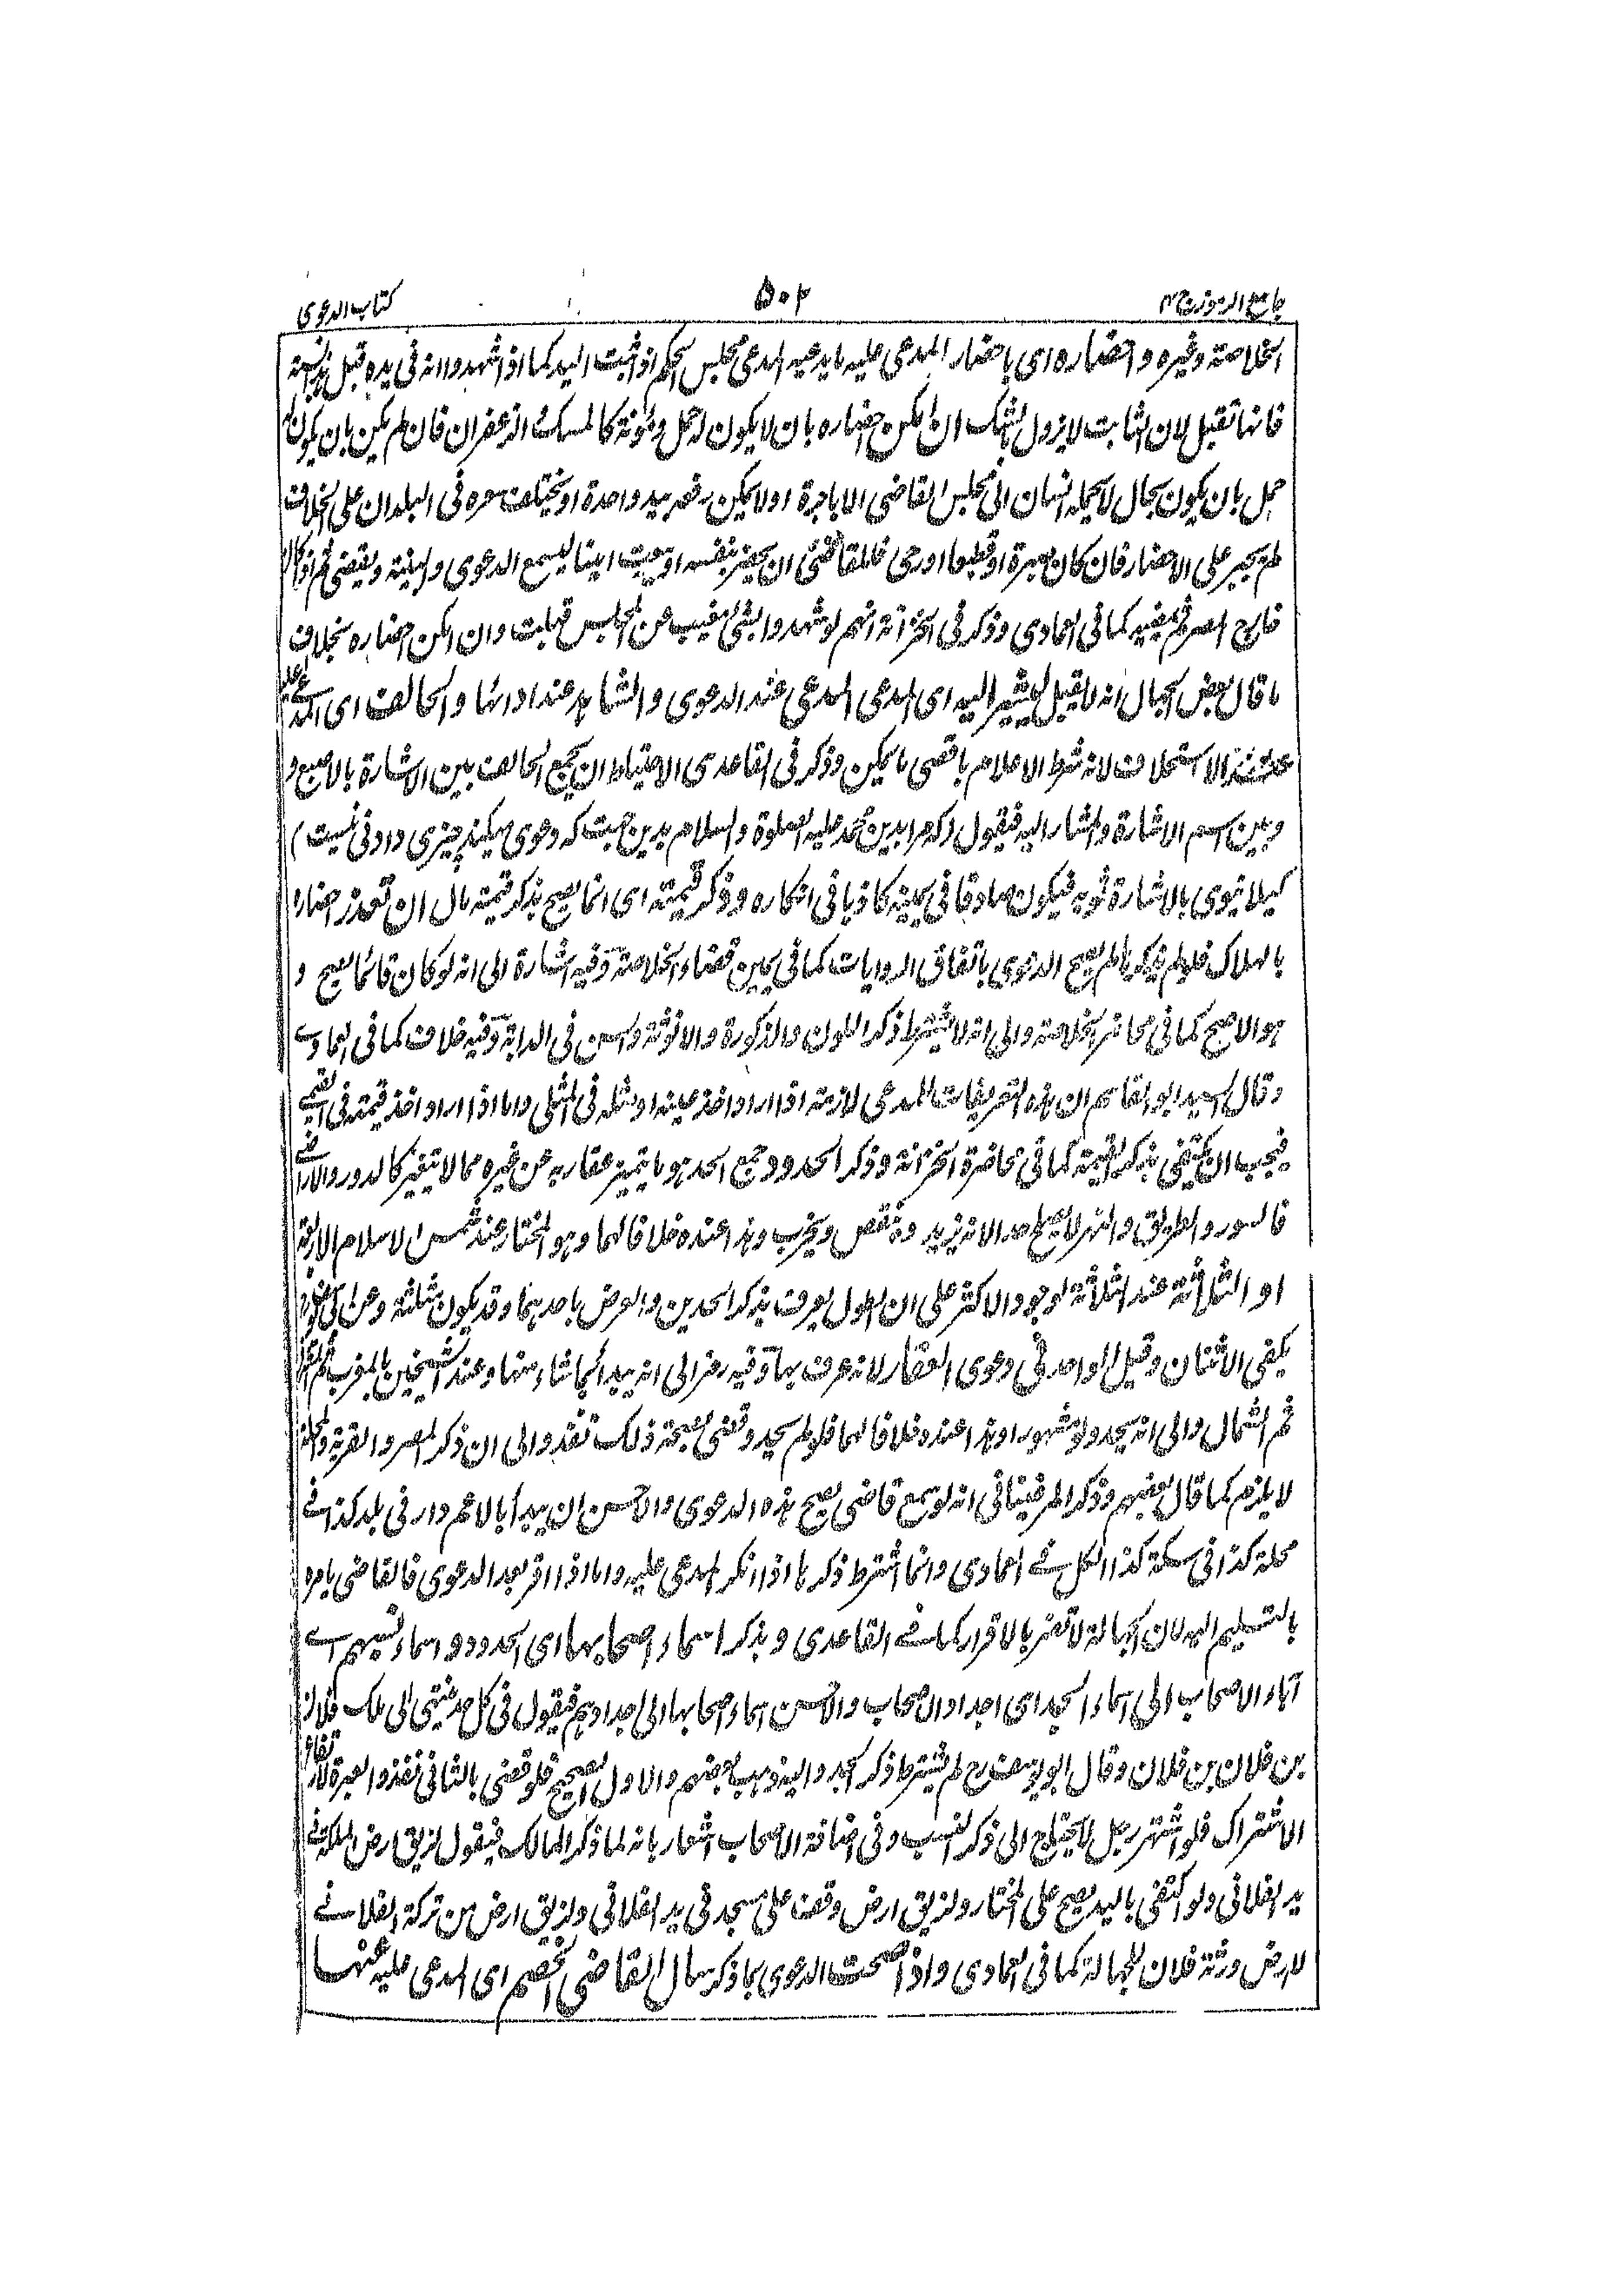 جامع الرموز ج ٢
٥٠٢
كتاب الدعوى
الخلاصة وغيره واحضاره اى باحضار المدعى عليه ما يدعيه المدعى مجلس الحكم اذا ثبت اليد كما اذا شهدوا انه فى يده قبل هذه السنة
فانها تقبل لان الثابت لا يزول بالشك ان امكن احضاره بان لا يكون له حمل ومؤنة كالمسك والزعفران فان لم يمكن بان يكون له
حمل بان يكون بحال لا يحمله انسان الى مجلس القاضى الا باجرة او لا يمكن رفعه بيد واحدة او يختلف سعره فى البلدان على الخلاف
لم يجبر على الاحضار فان كان صبرة او قطيعا او رحى فللقاضى ان يحضر بنفسه او يبعث امينا ليسمع الدعوى والبينة ويقضى ثم اذا كان
خارج المصر ثم يمضيه كما فى العمادى وذكر فى الخزانة انهم لو شهدوا بشئ مغيب عن المجلس قبلت وان امكن احضاره بخلاف
ما قال بعض الجهال انه لا يقبل ليشير اليه اى المدعى المدعى عند الدعوى والشاهد عند ادائها والحالف اى المدعى عليه
عند الاستحلاف لانه شرط الاعلام باقصى ما يمكن وذكر فى القاعدى الاحتياط ان يجمع الحالف بين الاشارة بالاصبع و
وبين اسم الاشارة والمشار اليه فيقول (كه مرا بدين محمد عليه الصلوة والسلام بدين جهت كه دعوى ميكند چيزى دادنى نيست)
كيلا ينوى بالاشارة ثوبه فيكون صادقا فى يمينه كاذبا فى انكاره وذكر قيمته اى انما يصح بذكر قيمته مال ان تعذر احضاره
بالهلاك فلو لم يذكرها لم يصح الدعوى باتفاق الروايات كما فى يمين قضاء الخلاصة وفيه اشارة الى انه لو كان قائما يصح و
هو الاصح كما فى محاضر الخلاصة والى انه لا يشترط ذكر اللون والذكورة والانوثة والسن فى الدابة وفيه خلاف كما فى العمادے
وقال السيد ابو القاسم ان هذه التعريفات للمدعى لازمة اذا اراد اخذ عينه او مثله فى المثلى واما اذا اراد اخذ قيمته فى القيمے
فيجب ان يكتفى بذكر القيمة كما فى محاضرة الخزانة وذكر الحدود جمع الحد هو ما يتميز عقار به عن غيره مما لا يتغير كالدور والاراضے
فالسور والطريق والنهر لا يصلح حدا لانه يزيد وينقص ويخرب وهذا عنده خلافا لهما وهو المختار عند شمس الاسلام الاربعة
او الثلاثة عند الثلاثة لوجود الاكثر على ان الطول يعرف بذكر الحدين والعرض باحدهما وقد يكون بثلثة وعن ابى يوسف
يكفى الاثنان وقيل الواحد فى دعوى العقار لانه عرف بها وفيه رمز الى انه يبدأ بما شاء منها وعند الشيخين بالمغرب ثم
ثم الشمال والى انه يحد ولو مشهورا وهذا عنده خلافا لهما فلو لم يحد وقضى بصحة ذلك نفذ والى ان ذكر المصر والقرية والمحلة
لا يلزم كما قال بعضهم وذكر المرغينانى انه لو سمع قاضى يصح هذه الدعوى والاحسن ان يبدأ بالاعم دار فى بلد كذا فے
محلة كذا فى سكة كذا الكل فے العمادى وانما اشترط ذكرها اذا انكر المدعى عليه واما اذا اقر بعد الدعوى فالقاضى يامره
بالتسليم اليه لان الجهالة لا تضر بالاقرار كما فے القاعدى وبذكر اسماء اصحابها اى الحدود واسماء نسبهم اے
آباء الاصحاب الى اسماء الجد اى اجداد الاصحاب والاحسن اسماء اصحابها الى اجدادهم فيقول فى كل حد ينتهى الى ملك فلان
بن فلان بن فلان وقال ابو يوسف رح لم يشترط ذكر الجد واليه ذهب بعضهم والاول الصحيح فلو قضى بالثانى نفذ والعبرة لارتفاع
الاشتراك فلو اشتهر رجل لا يحتاج الى ذكر النسب وفى اضافة الاصحاب اشعار بانه لما ذكر المالك فيقول لزيق ارض المملكة فے
يد الفلانى ولو اكتفى باليد يصح على المختار ولزيق ارض وقف على مسجد فى يد الفلانى ولزيق ارض من تركة الفلانے
لا ارض ورثة فلان للجهالة كما فى العمادى واذا صحت الدعوى بما ذكر سال القاضى الخصم اى المدعى عليه عنها